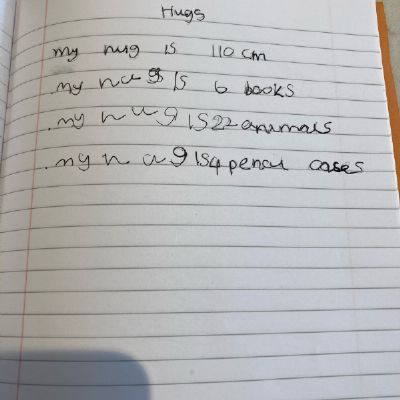 Hugs
my hug is 110 cm
.my hug is 6 books
.my hug is 22 animals
.my hug is 4 pencil cases